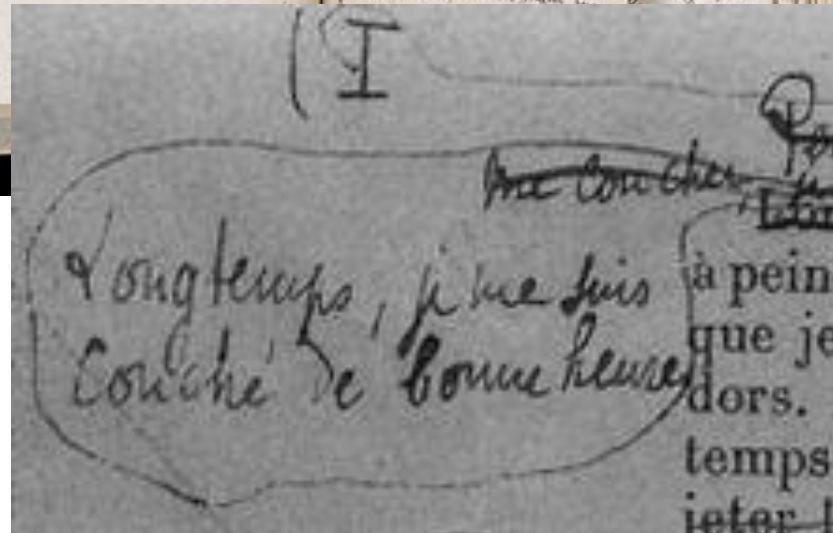 I
me coucher,
Longtemps, je me suis
couché de bonne heure
à pein
que je
dors.
temps
jeter l